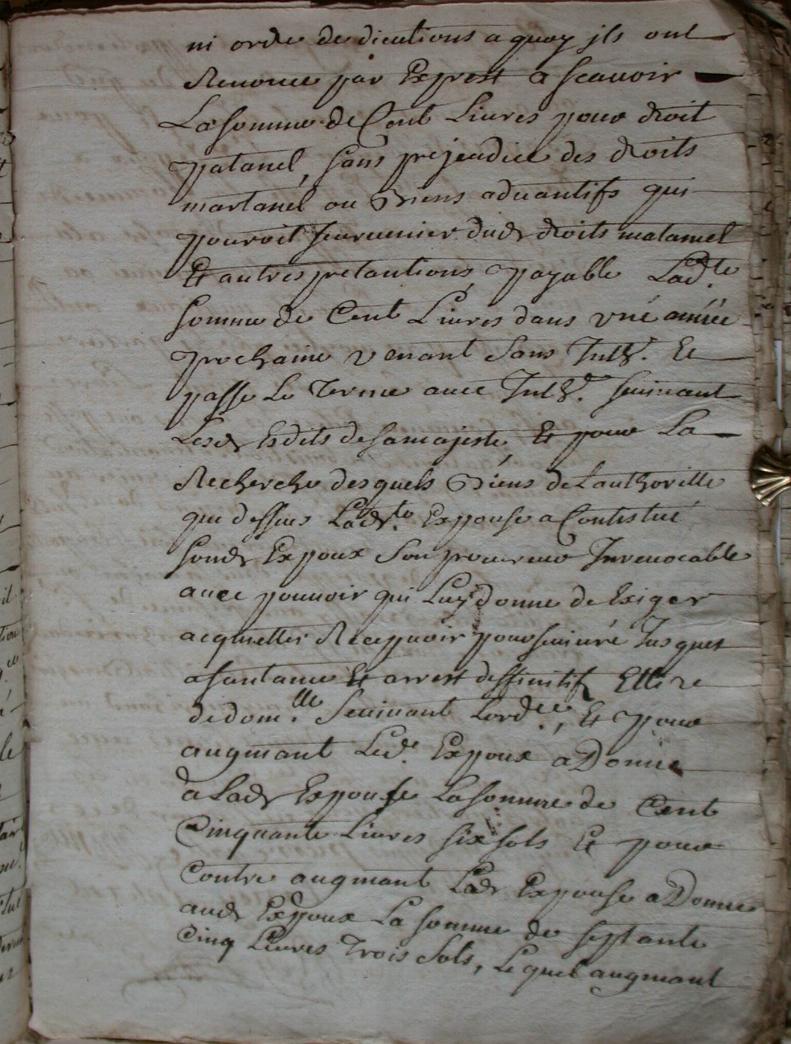 ni ordre de dicutions a quoy jls ont
Renonce par Exprest a scauoir
La somme de Cent Liures pour droit
patanel, sans prejeudice des droits
martanel ou Biens aduantifs qui
pouroit suruenier dudt droits matarnel
Et autres pretantions, payable Ladte
somme de Cent Liures dans vne année
prochaine venant Sans Intt. Et
passe Le Terme auec Intt. suiuant
Lesdt Edits de sa majesté, Et pour La
Recherche desquels Biens de Lauthoritté
que dessus Ladte Expouse a Constitué
sondt Expoux Son procureur Inreuocable
auec pouuoir qui Luy donne de Exiger
acquitter Recepuoir poursuiuré Jusques
a santance Et arrest deffinitif Ellire
de domlle Seuiuant Lordce, Et pour
augmant Ledt Expoux a Donné
a Ladt Expouse La somme de Cent
Cinquante Liures six sols Et pour
Contre augmant Ladt Expouse a Donné
audt Expoux La somme de septante
Cinq Liures Trois sols, Lequel augmant